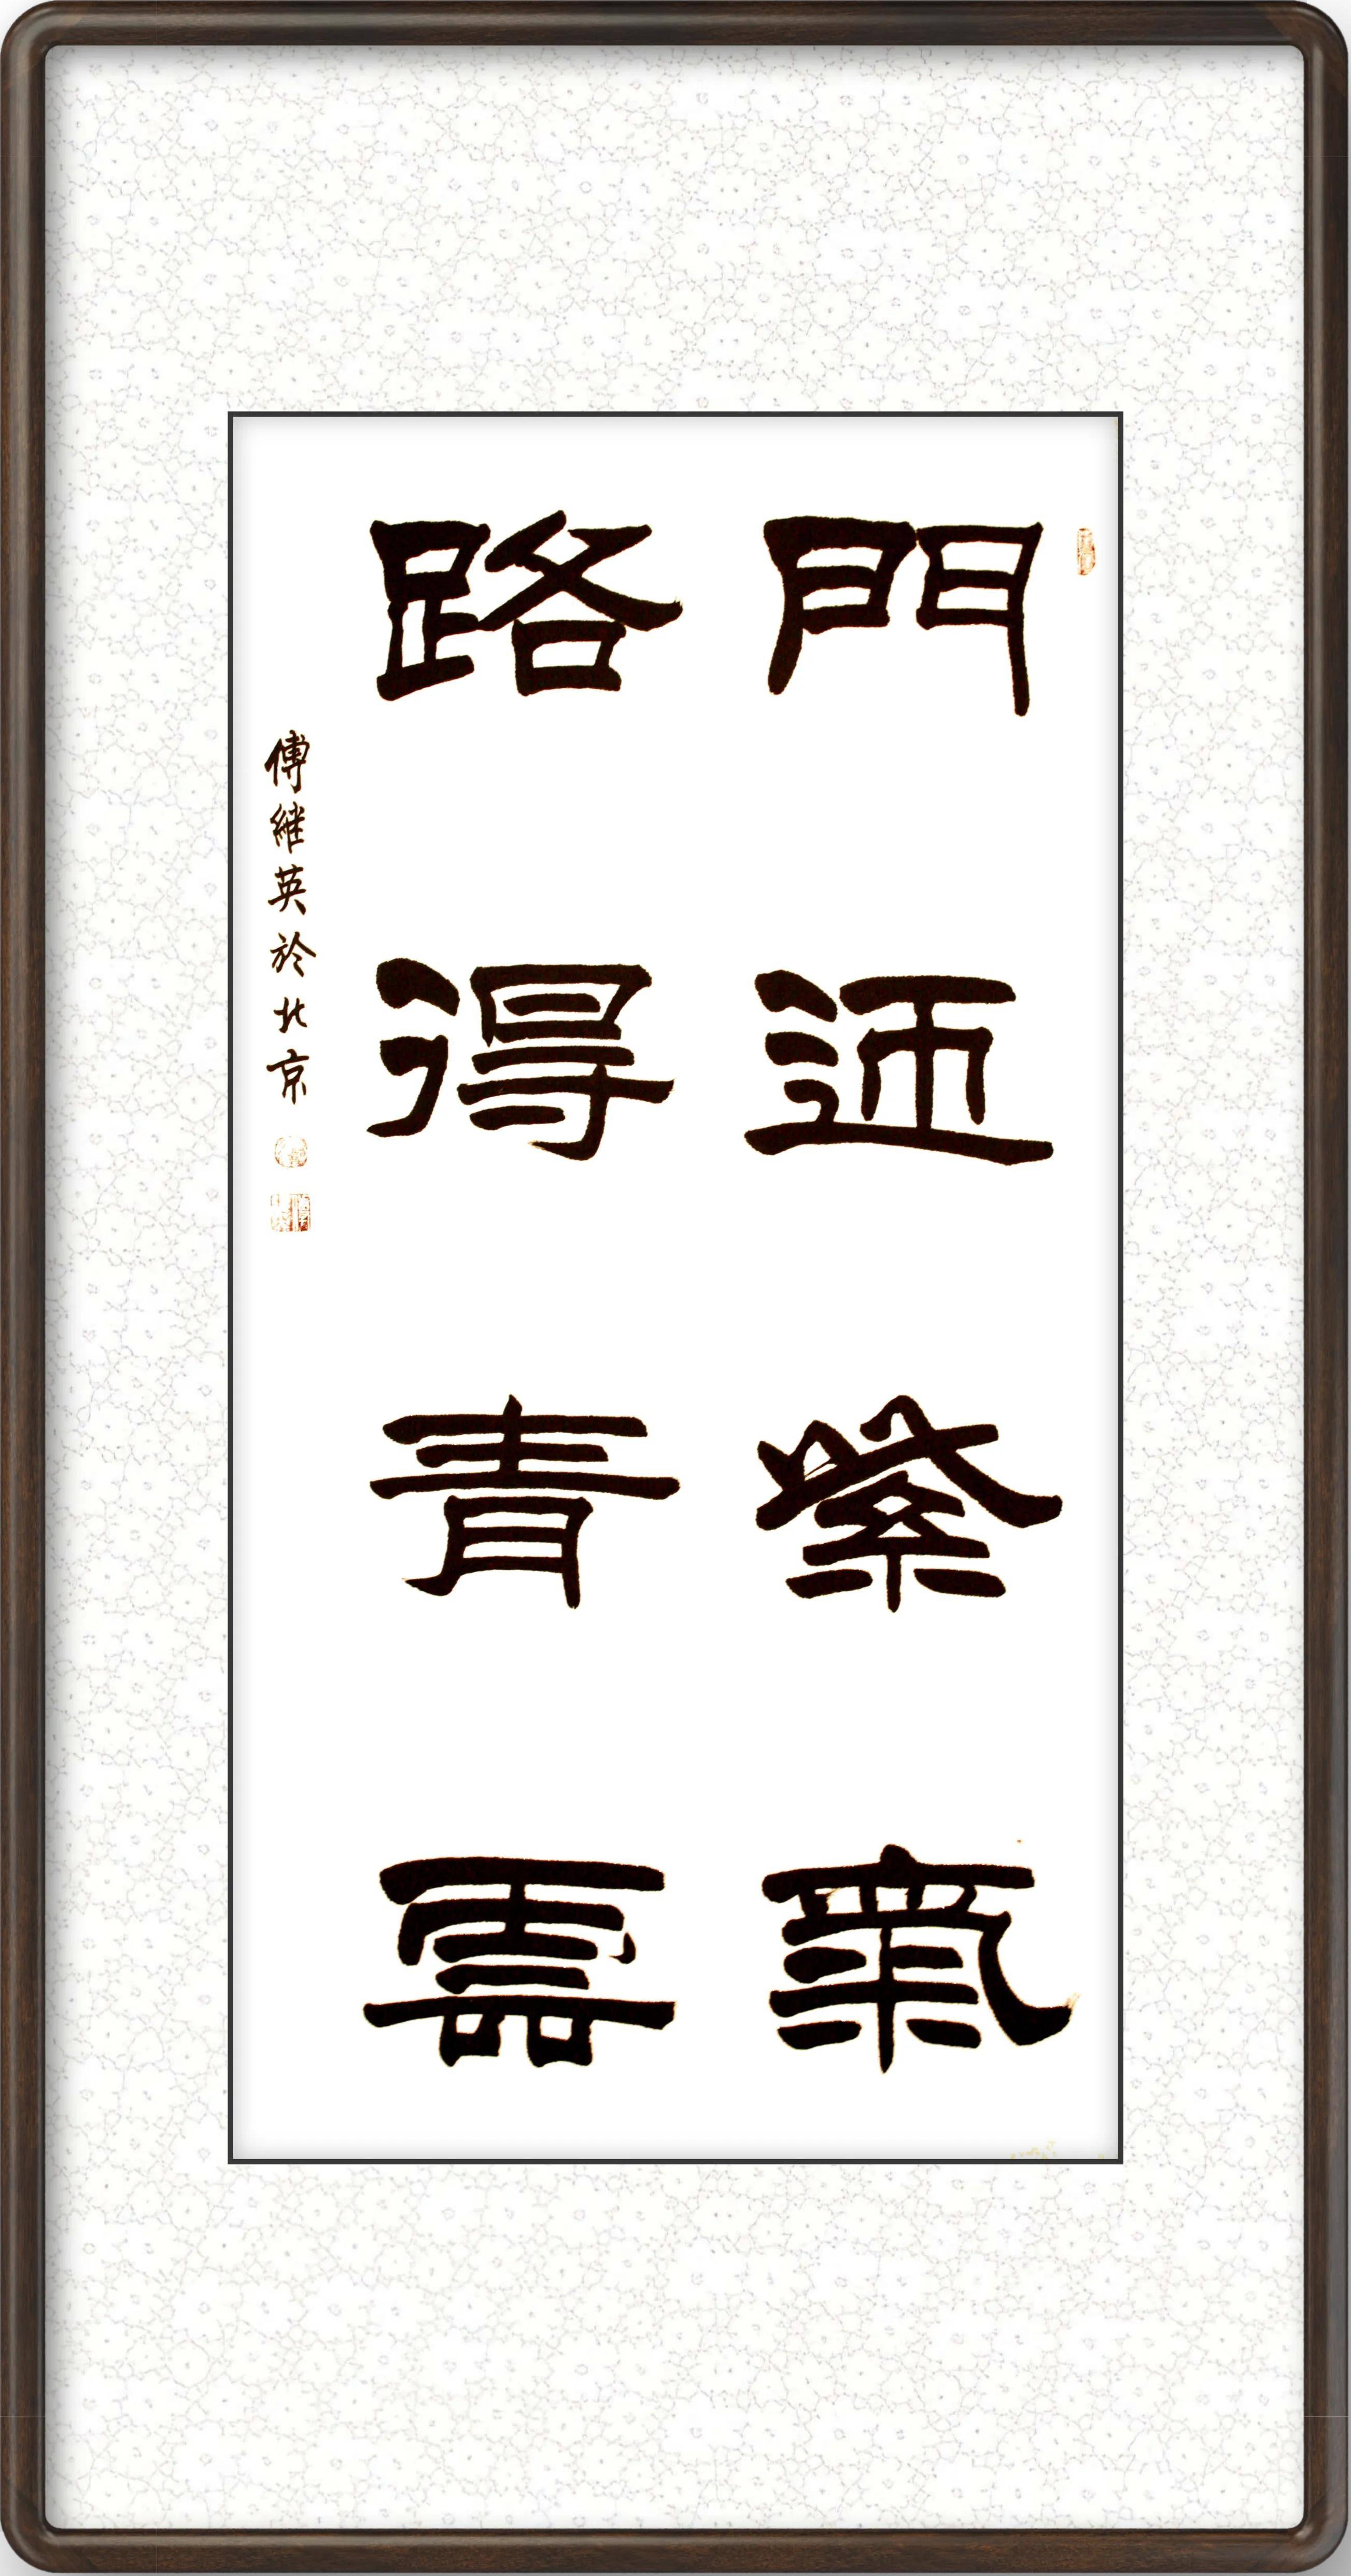 門迊紫氣
路得青雲
傅継英於北京